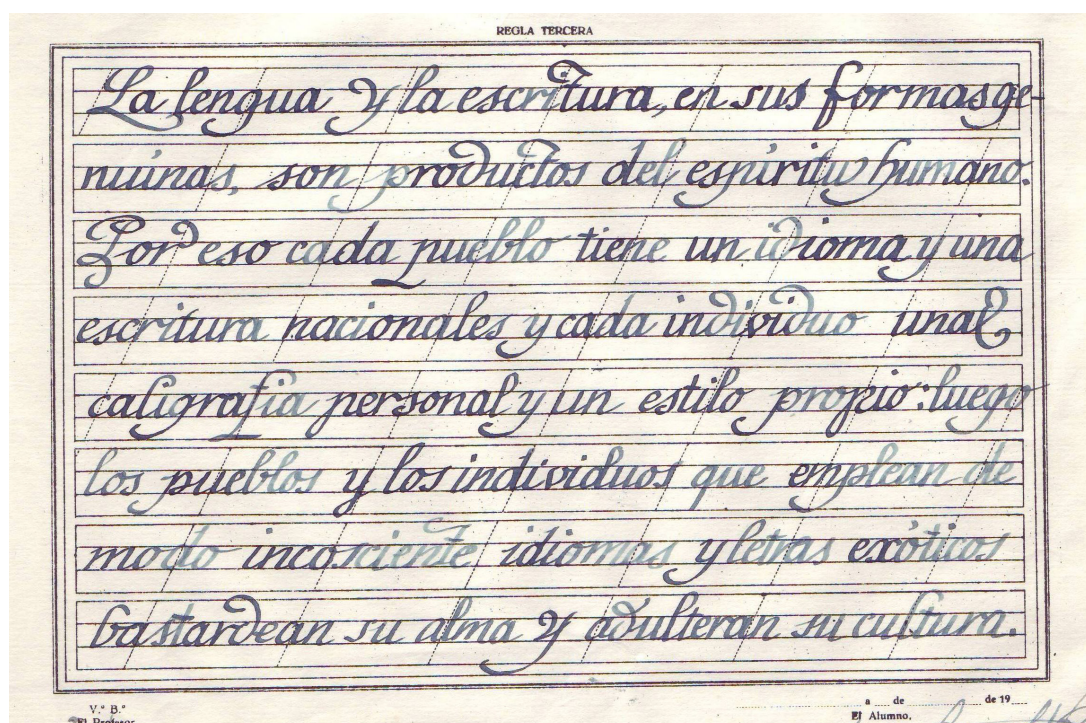 REGLA TERCERA
La lengua y la escritura, en sus formas ge-
nuinas, son productos del espíritu humano.
Por eso cada pueblo tiene un idioma y una
escritura nacionales y cada individuo una
caligrafía personal y un estilo propio: luego
los pueblos y los individuos que emplean de
modo incosciente idiomas y letras exóticos
bastardean su alma y adulteran su cultura.
V.º B.º
El Profesor
a de de 19
El Alumno,